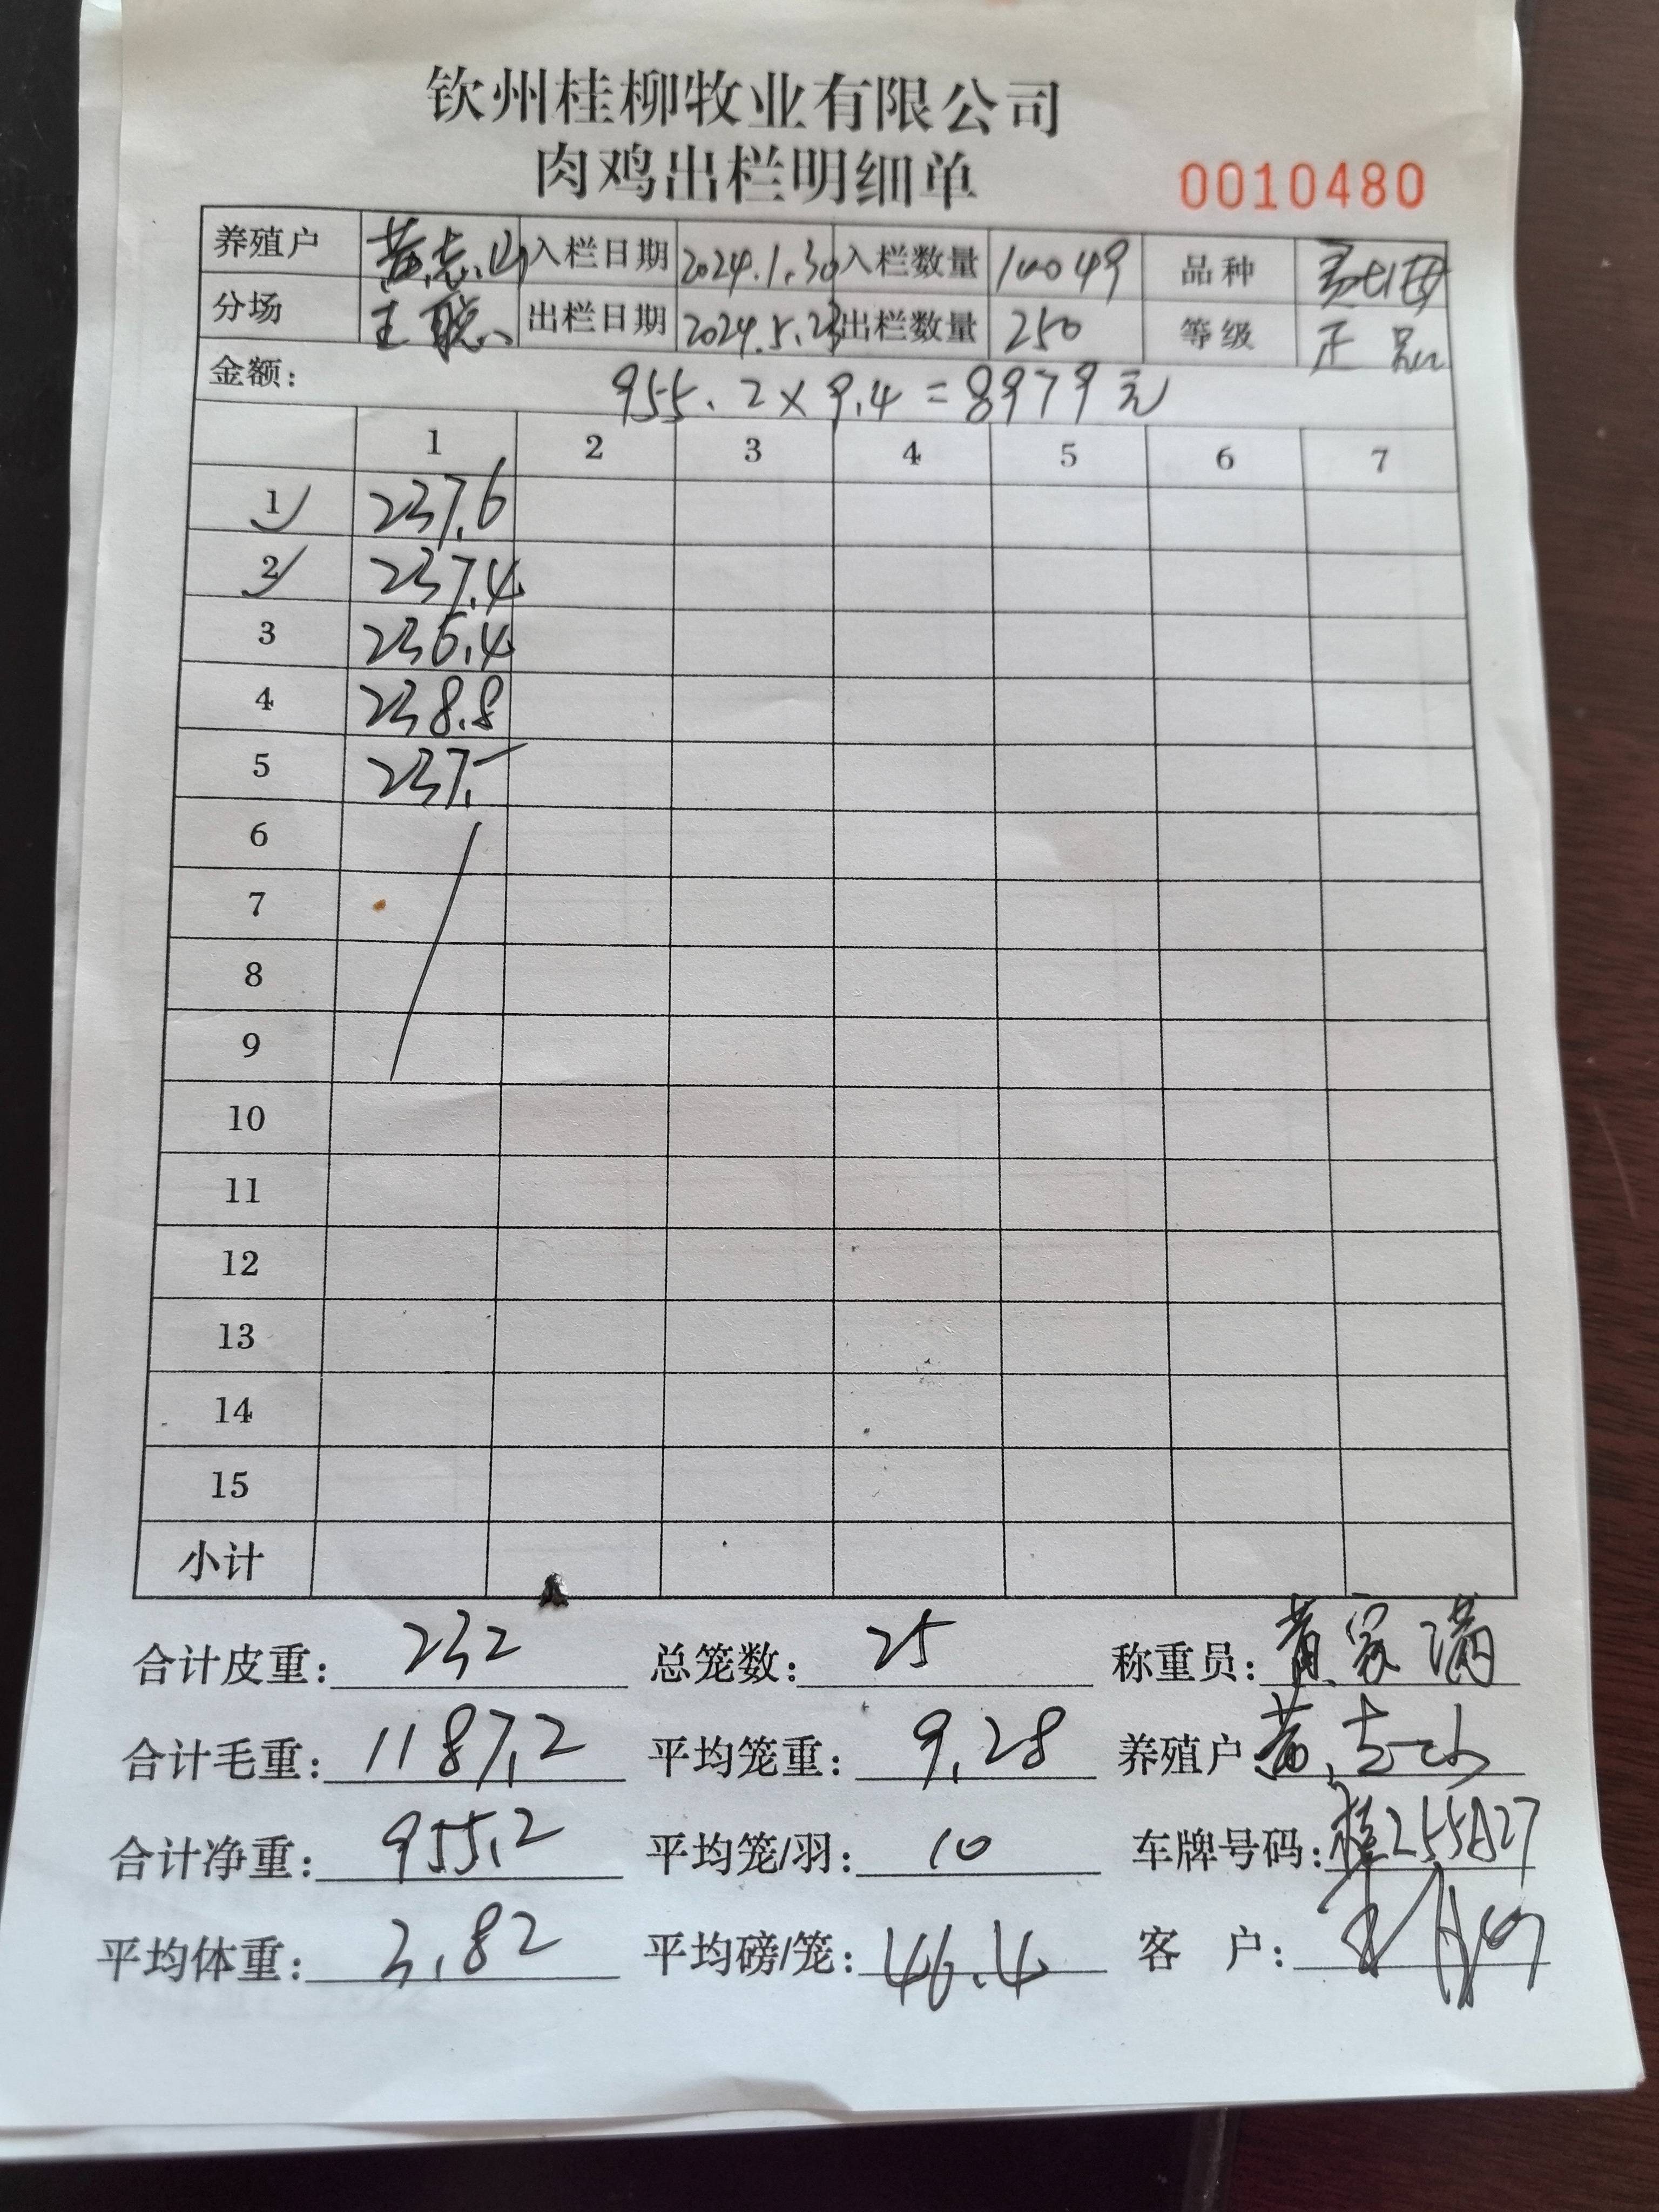 钦州桂柳牧业有限公司
肉鸡出栏明细单 0010480
养殖户 黄志山 入栏日期 2024.1.30 入栏数量 10049 品种
分场 王聪 出栏日期 2024.5.23 出栏数量 250 等级 正品
金额: 955.2×9.4=8979元
1 2 3 4 5 6 7
1 237.6
2 237.4
3 236.4
4 238.8
5 237.-
6
7
8
9
10
11
12
13
14
15
小计
合计皮重: 232 总笼数: 25 称重员: 黄家满
合计毛重: 1187.2 平均笼重: 9.28 养殖户 黄志山
合计净重: 955.2 平均笼/羽: 10 车牌号码: 桂255A27
平均体重: 3.82 平均磅/笼: 46.4 客 户: